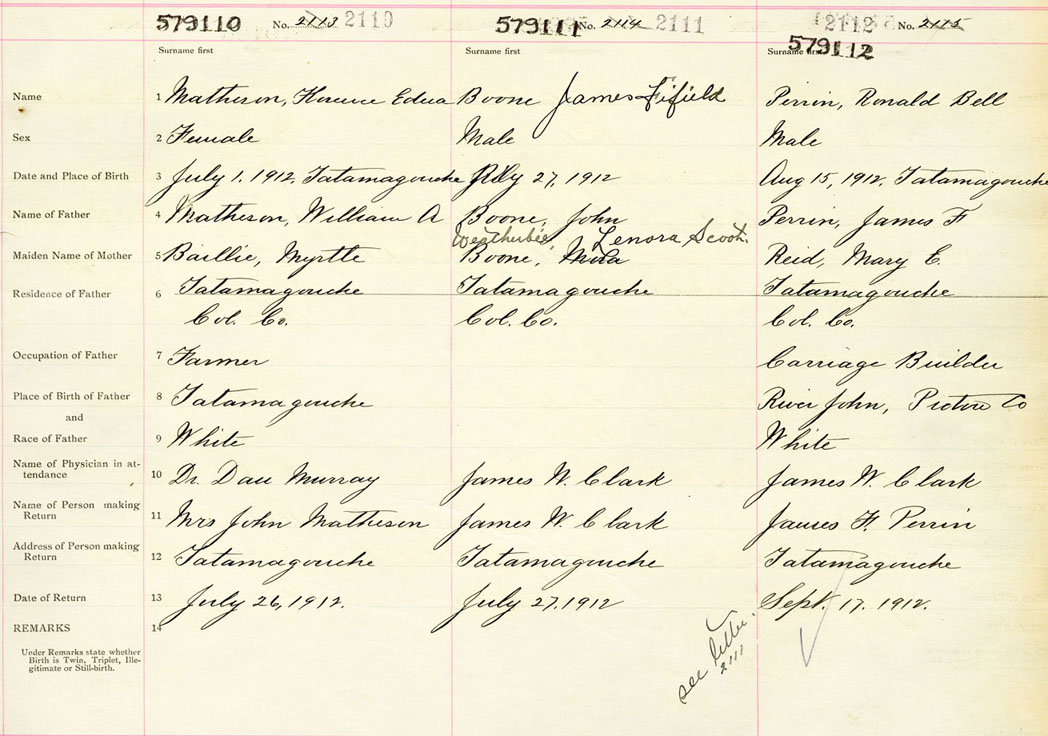 579110 No. 2113 2110 579111 No. 2114 2111 2112 No. 2115
579112
Surname first Surname first Surname first
Name 1 Matheson, Florence Edna Boone James Fifield Perrin, Ronald Bell
Sex 2 Female Male Male
Date and Place of Birth 3 July 1. 1912, Tatamagouche July 27, 1912 Aug 15, 1912, Tatamagouche
Name of Father 4 Matheson, William A Boone, John Perrin, James F
Weatherbie, Lenora Scoot.
Maiden Name of Mother 5 Baillie, Myrtle Boone, Reid, Mary E.
Residence of Father 6 Tatamagouche Tatamagouche Tatamagouche
Col. Co. Col. Co. Col. Co.
Occupation of Father 7 Farmer Carriage Builder
Place of Birth of Father 8 Tatamagouche River John, Pictou Co
and
Race of Father 9 White White
Name of Physician in at-
tendance 10 Dr. Dan Murray James W. Clark James W. Clark
Name of Person making
Return 11 Mrs John Matheson James W. Clark James F. Perrin
Address of Person making
Return 12 Tatamagouche Tatamagouche Tatamagouche
Date of Return 13 July 26, 1912. July 27. 1912 Sept. 17. 1912.
REMARKS 14
Under Remarks state whether
Birth is Twin, Triplet, Ille-
gitimate or Still-birth.
see letter
2111